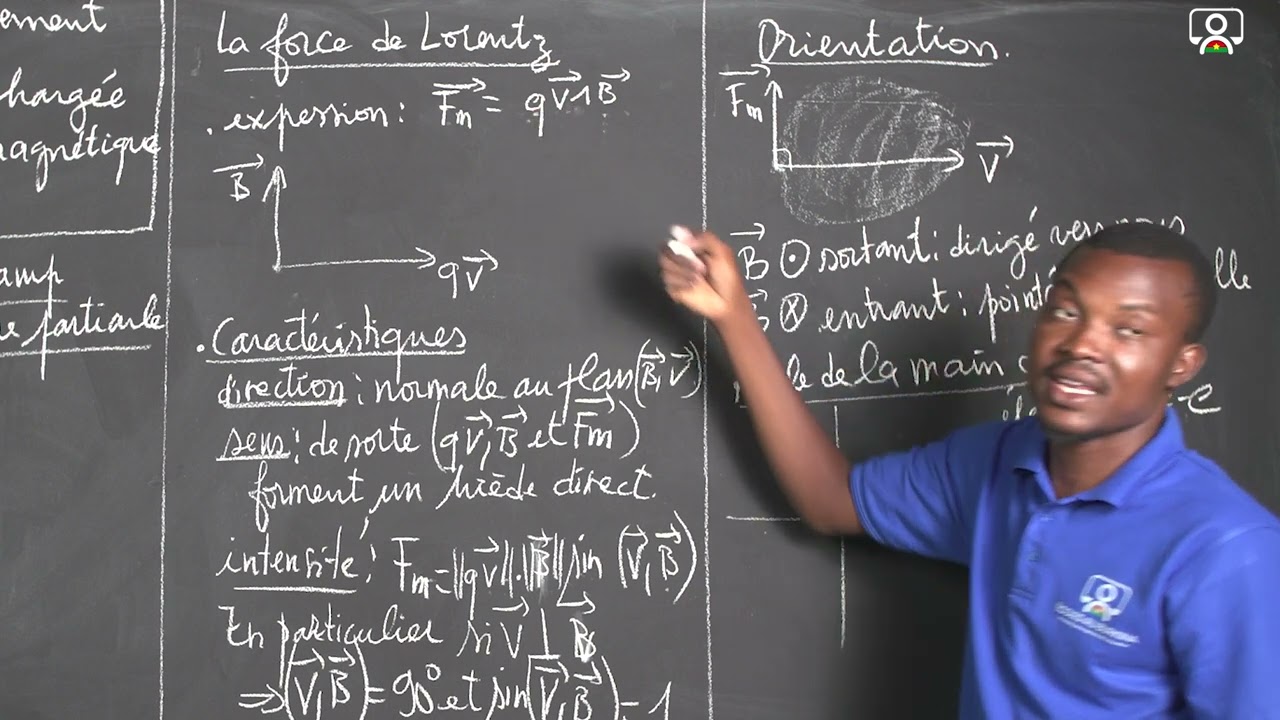 ement
hargée
magnétique
amp
e particule
La force de Lorentz
. expression : Fm = qV∧B
B
qV
. Caractéristiques
direction : normale au plan (B, V)
sens : de sorte (qV, B et Fm)
forment un trièdre direct.
intensité : Fm = ||qV||.||B|| sin (V, B)
En particulier si V ⊥ B
⇒ (V, B) = 90° et sin(V, B) = 1
Orientation.
Fm
V
B ⊙ sortant : dirigé vers nous
⊗ entrant : pointé
lle
de la main